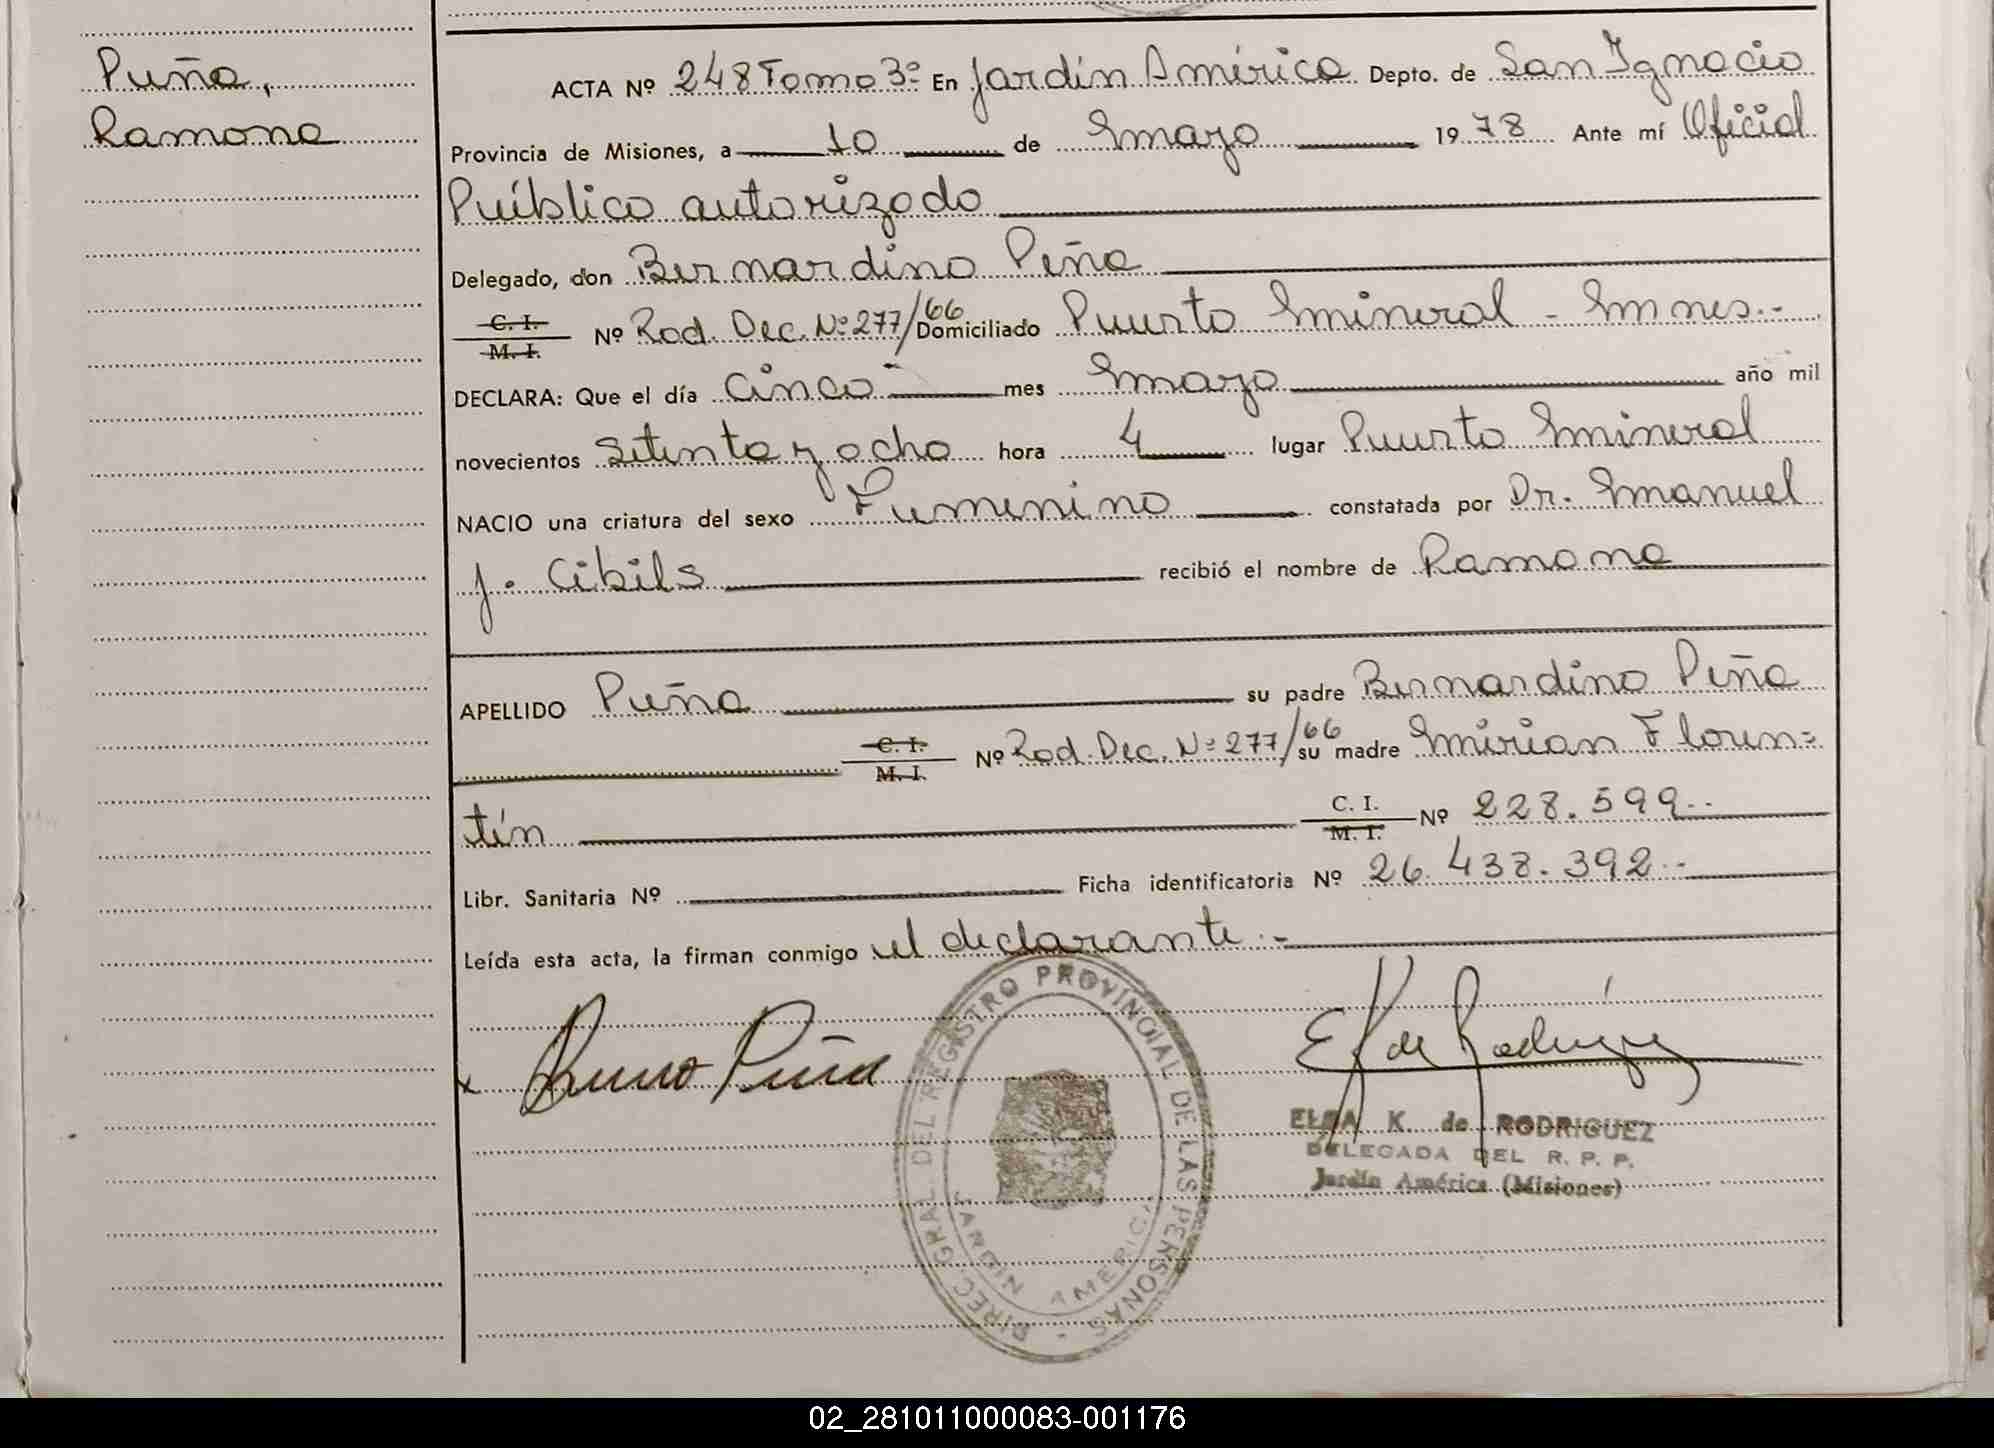 Peña,
Ramona
ACTA Nº 248 Tomo 3º En Jardín América Depto. de San Ignacio
Provincia de Misiones, a 10 de mayo 1978 Ante mí Oficial
Público autorizado
Delegado, don Bernardino Peña
C. I.
M. I. Nº Rad. Dec. Nº 277/66 Domiciliado Puerto Mineral - Mnes.-
DECLARA: Que el día cinco mes mayo año mil
novecientos setenta y ocho hora 4 lugar Puerto Mineral
NACIO una criatura del sexo Femenino constatada por Dr. Manuel
J. Cibils recibió el nombre de Ramona
APELLIDO Peña su padre Bernardino Peña
C. I.
M. I. Nº Rad. Dec. Nº 277/66 su madre Mirian Floren=
tín C. I.
M. I. Nº 228.599.-
Libr. Sanitaria Nº Ficha identificatoria Nº 26.438.392.-
Leída esta acta, la firman conmigo el declarante.-
x Peña
E K de Rodríguez
DIREC. GRAL. DEL REGISTRO PROVINCIAL DE LAS PERSONAS -
JARDIN AMERICA
ELSA K. de RODRIGUEZ
DELEGADA DEL R. P. P.
Jardín América (Misiones)
02_281011000083-001176